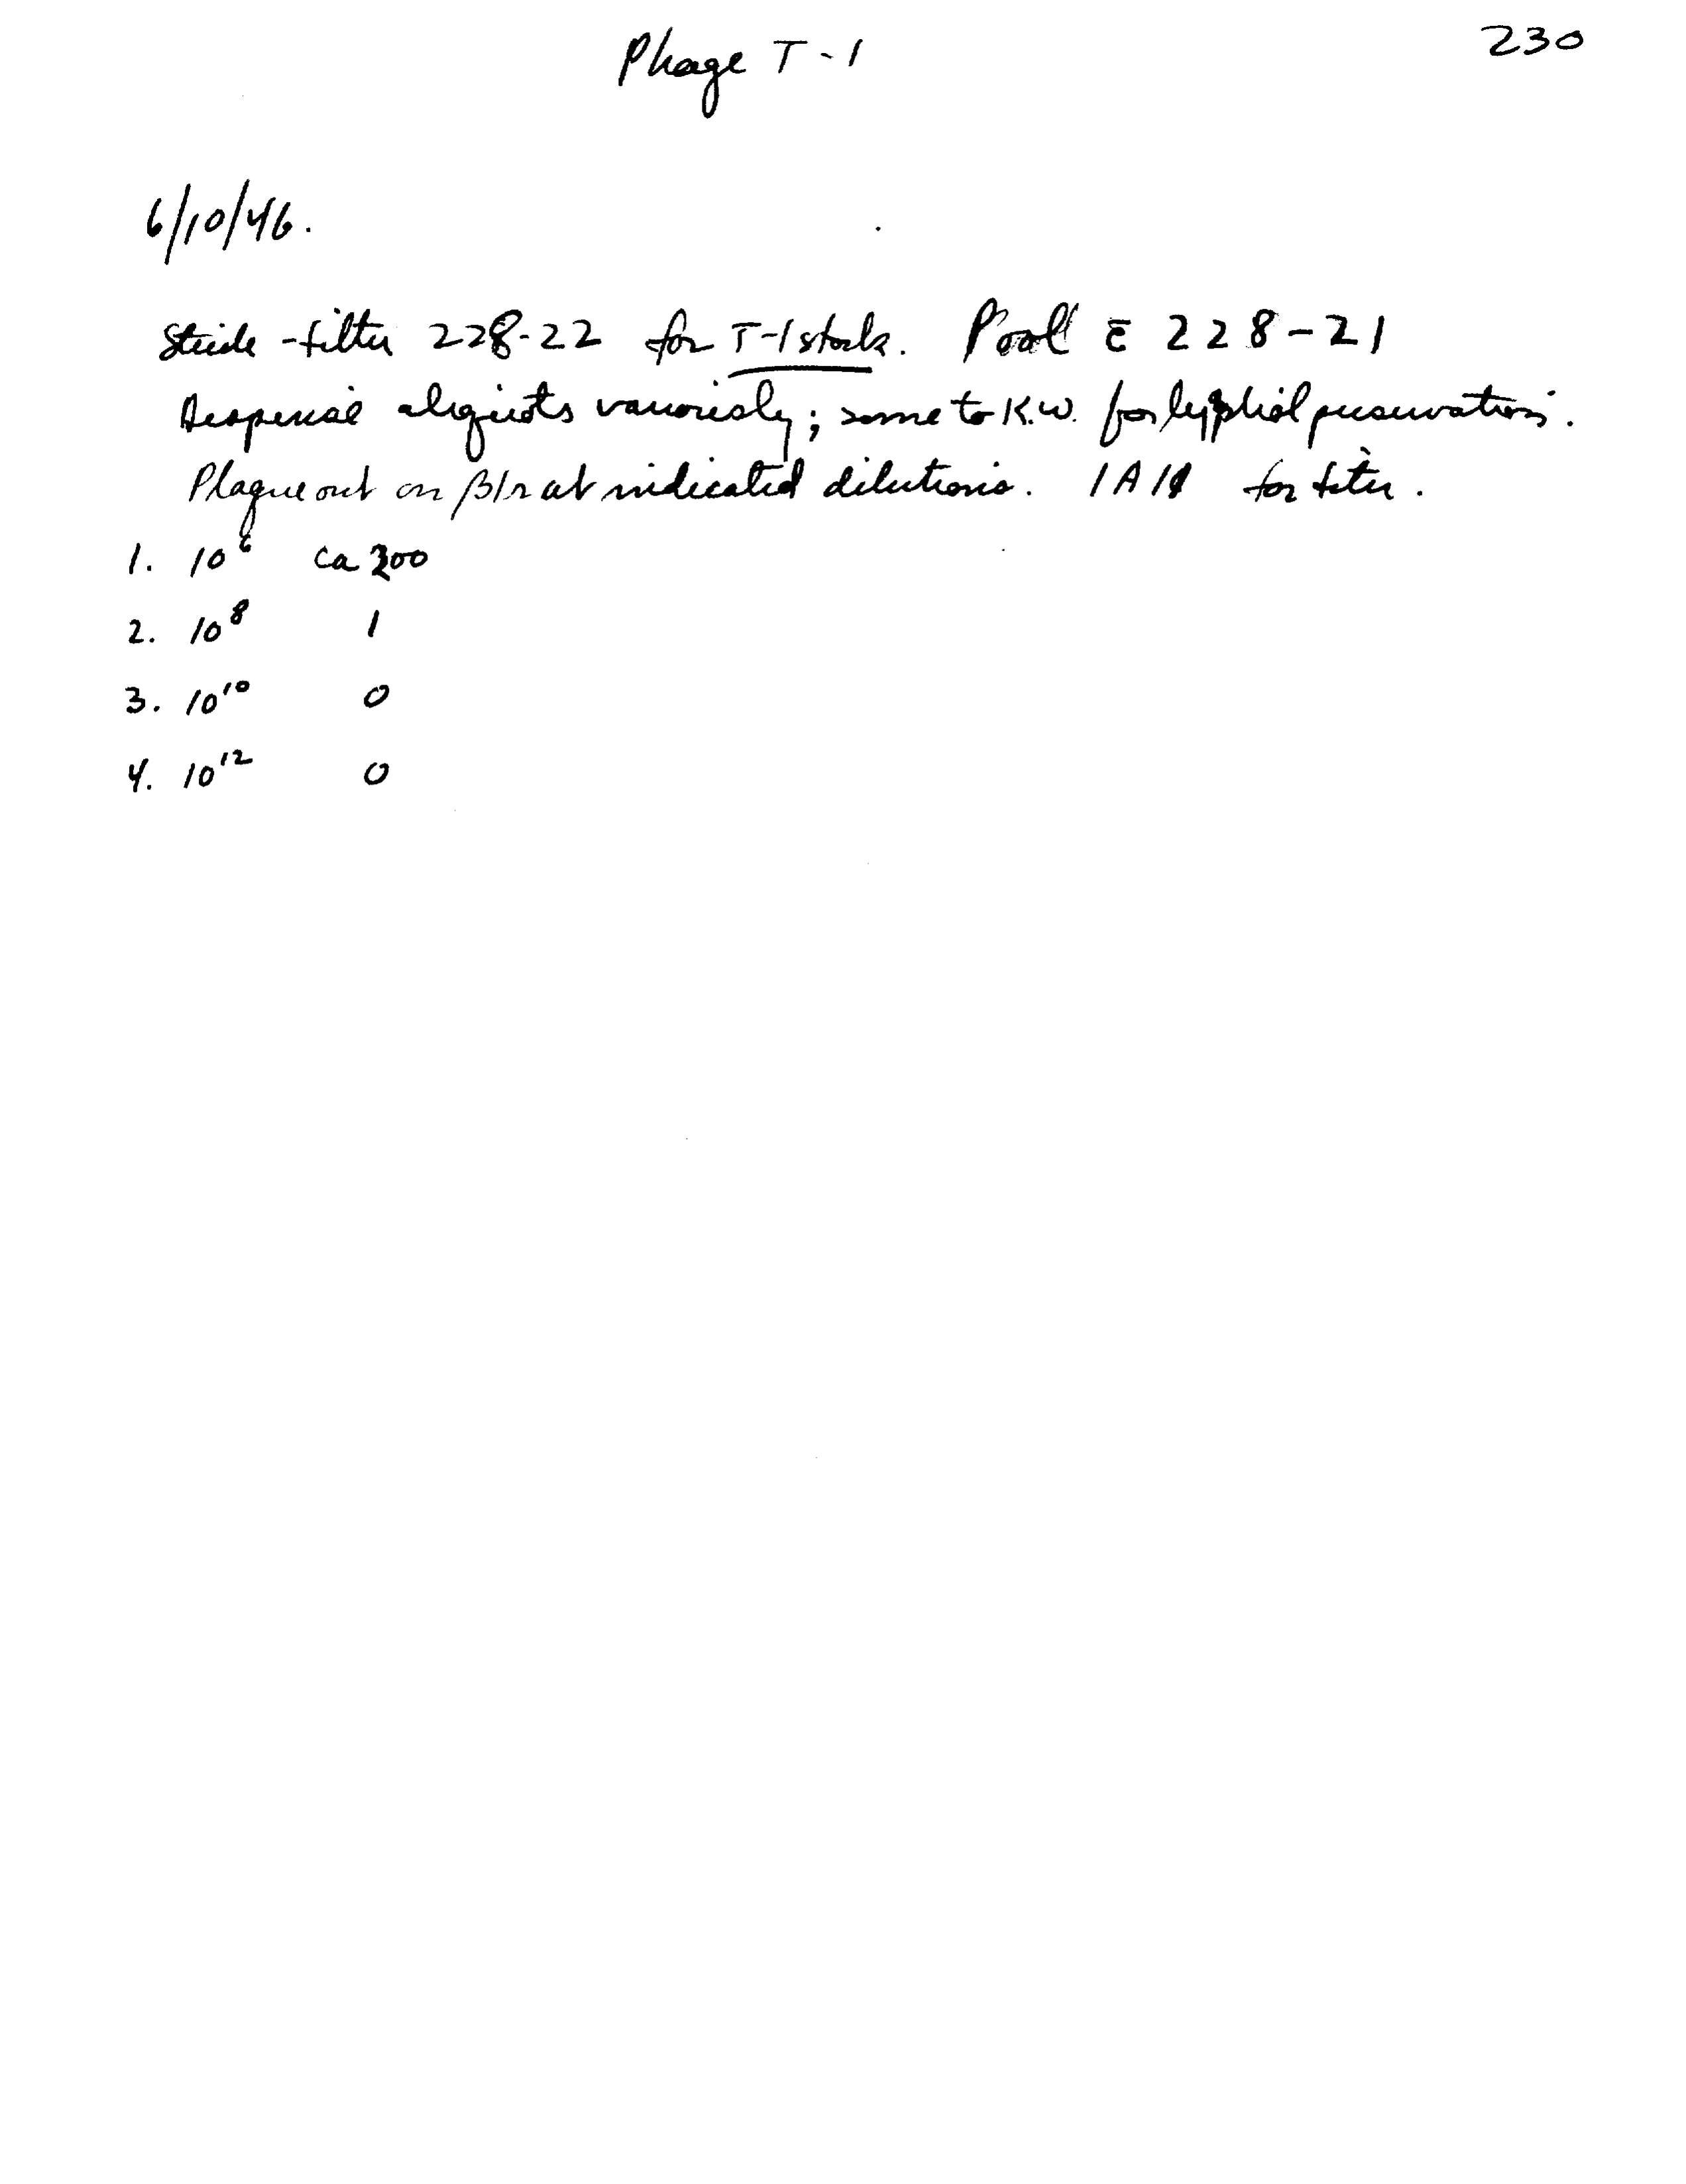 Phage T-1
230
6/10/46.
Sterile-filter 228-22 for T-1 stock. Pool c̄ 228-21
Dispense aliquots variously; some to K.W. for lyophil preservation.
Plaque out on B/r at indicated dilutions. for titer.
1. 10⁶ ca 300
2. 10⁸ 1
3. 10¹⁰ 0
4. 10¹² 0